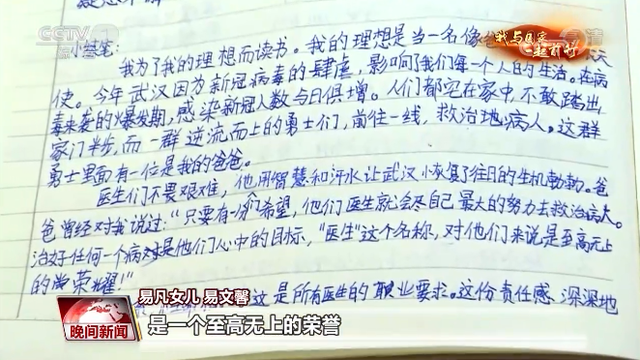 CCTV 1
综合
高清
我与国家
一起前行
小练笔:
我为了我的理想而读书。我的理想是当一名像爸
使。今年武汉因为新冠病毒的肆虐,影响了我们每一个人的生活。在病
毒来袭的爆发期,感染新冠人数与日俱增。人们都宅在家中,不敢踏出
家门半步,而一群逆流而上的勇士们,前往一线,救治地病人。这群
勇士里面有一位是我的爸爸。
医生们不畏艰难,他用智慧和汗水让武汉恢复了往日的生机勃勃。爸
爸曾经对我说过:“只要有一份希望,他们医生就会尽自己最大的努力去救治病人。
治好任何一个病对是他们心中的目标,“医生”这个名称,对他们来说是至高无上
的荣耀!”
这是所有医生的职业要求。这份责任感深深地
易凡女儿 易文馨
是一个至高无上的荣誉
晚间新闻